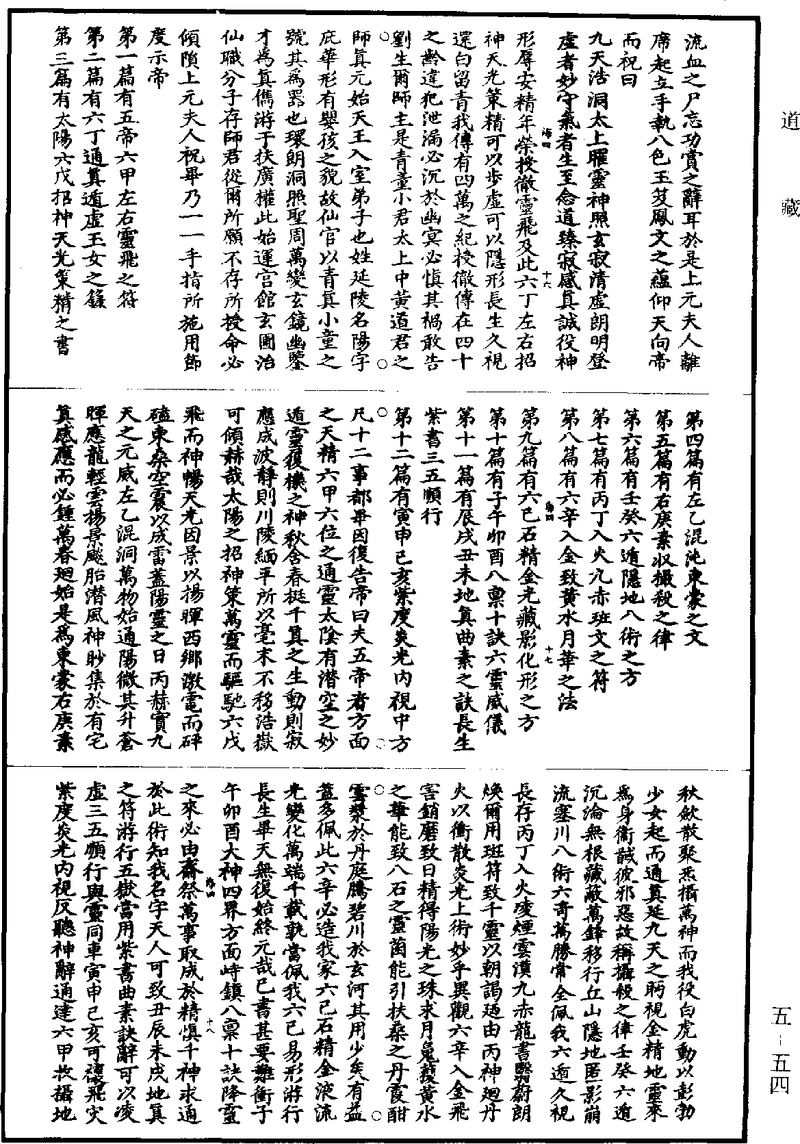 道藏
流血之尸忘功賞之辭耳於是上元夫人離
席起立手執八色玉芨鳳文之蘊仰天向帝
而祝曰
九天浩洞太上耀靈神照玄寂清虛朗明登
虛者妙守氣者生至念道臻寂感真誠役神
形辱安精年榮授徹靈飛及此六丁左右招
海四
十六
神天光策精可以步虛可以隱形長生久視
還白留青我傳有四萬之紀授徹傳在四十
之齡違犯泄漏必沉於幽冥必慎其禍敢告
劉生爾師主是青童小君太上中黃道君之
師真元始天王入室弟子也姓延陵名陽字
庇華形有嬰孩之貌故仙官以青真小童之
號其為器也環朗洞照聖周萬變玄鏡幽鑒
才為真儁游于扶廣權此始運宮館玄圃治
仙職分子存師君從爾所願不存所授命必
傾隕上元夫人祝畢乃一一手指所施用節
度示帝
第一篇有五帝六甲左右靈飛之符
第二篇有六丁通真遁虛玉女之籙
第三篇有太陽六戊招神天光策精之書
第四篇有左乙混沌東蒙之文
第五篇有右庚素收攝殺之律
第六篇有壬癸六遁隱地八術之方
第七篇有丙丁入火九赤班文之符
第八篇有六辛入金致黃水月華之法
海四
十七
第九篇有六己石精金光藏影化形之方
第十篇有子午卯酉八稟十訣六靈威儀
第十一篇有辰戌丑未地真曲素之訣長生
紫書三五順行
第十二篇有寅申巳亥紫度炎光內視中方
凡十二事都畢因復告帝曰夫五帝者方面
之天精六甲六位之通靈太陰有潛空之妙
遁靈復機之神秋舍春挺千真之生動則寂
應成波靜則川陵緬平所以毫末不移浩嶽
可傾赫哉太陽之招神策萬靈而驅馳六戊
飛而神暢天光因景以揚暉西鄉激電而砰
磕東桑空震以成雷蓋陽靈之日丙赫實九
天之元威左乙混洞萬物始通陽微其升蒼
暉應龍輕雲揚景飈胎潛風神眇集於有宅
真感應而必鍾萬春廻始是為東蒙右庚素
秋歛散聚炁攝萬神而我役白虎動以彭勃
少女起而通真延九天之眄視金精地靈來
為身衛馘彼邪惡故稱攝殺之律壬癸六遁
沉淪無根藏蔽萬鋒移行丘山隱地匿影崩
流塞川八術六奇萬勝常全佩我六遁久視
長存丙丁入火陵煙雲漢九赤龍書翳蔚朗
煥爾用班符致千靈以朝謁廻由丙神廻丹
火以衝散炎光上術妙乎異觀六辛入金飛
害銷磨致日精得陽光之珠求月魄獲黃水
之華能致八石之靈茵能引扶桑之丹霞酣
雲漿於丹庭騰碧川於玄河其用少矣有益
蓋多佩此六辛必造我家六己石精金液流
光變化萬端千載孰當佩我六己易形游行
長生畢天無復始終元哉己書甚要難衝子
午卯酉大神四界方面峙鎮八稟十訣降靈
海四
十八
之來必由齋祭萬事取成於精慎千神求通
於此術知我名字天人可致丑辰未戌地真
之符游行五嶽當用紫書曲素訣辭可以凌
虛三五順行與靈同車寅申巳亥可禳飛灾
紫度炎光內視反聽神辭通達六甲收攝地
五－五四